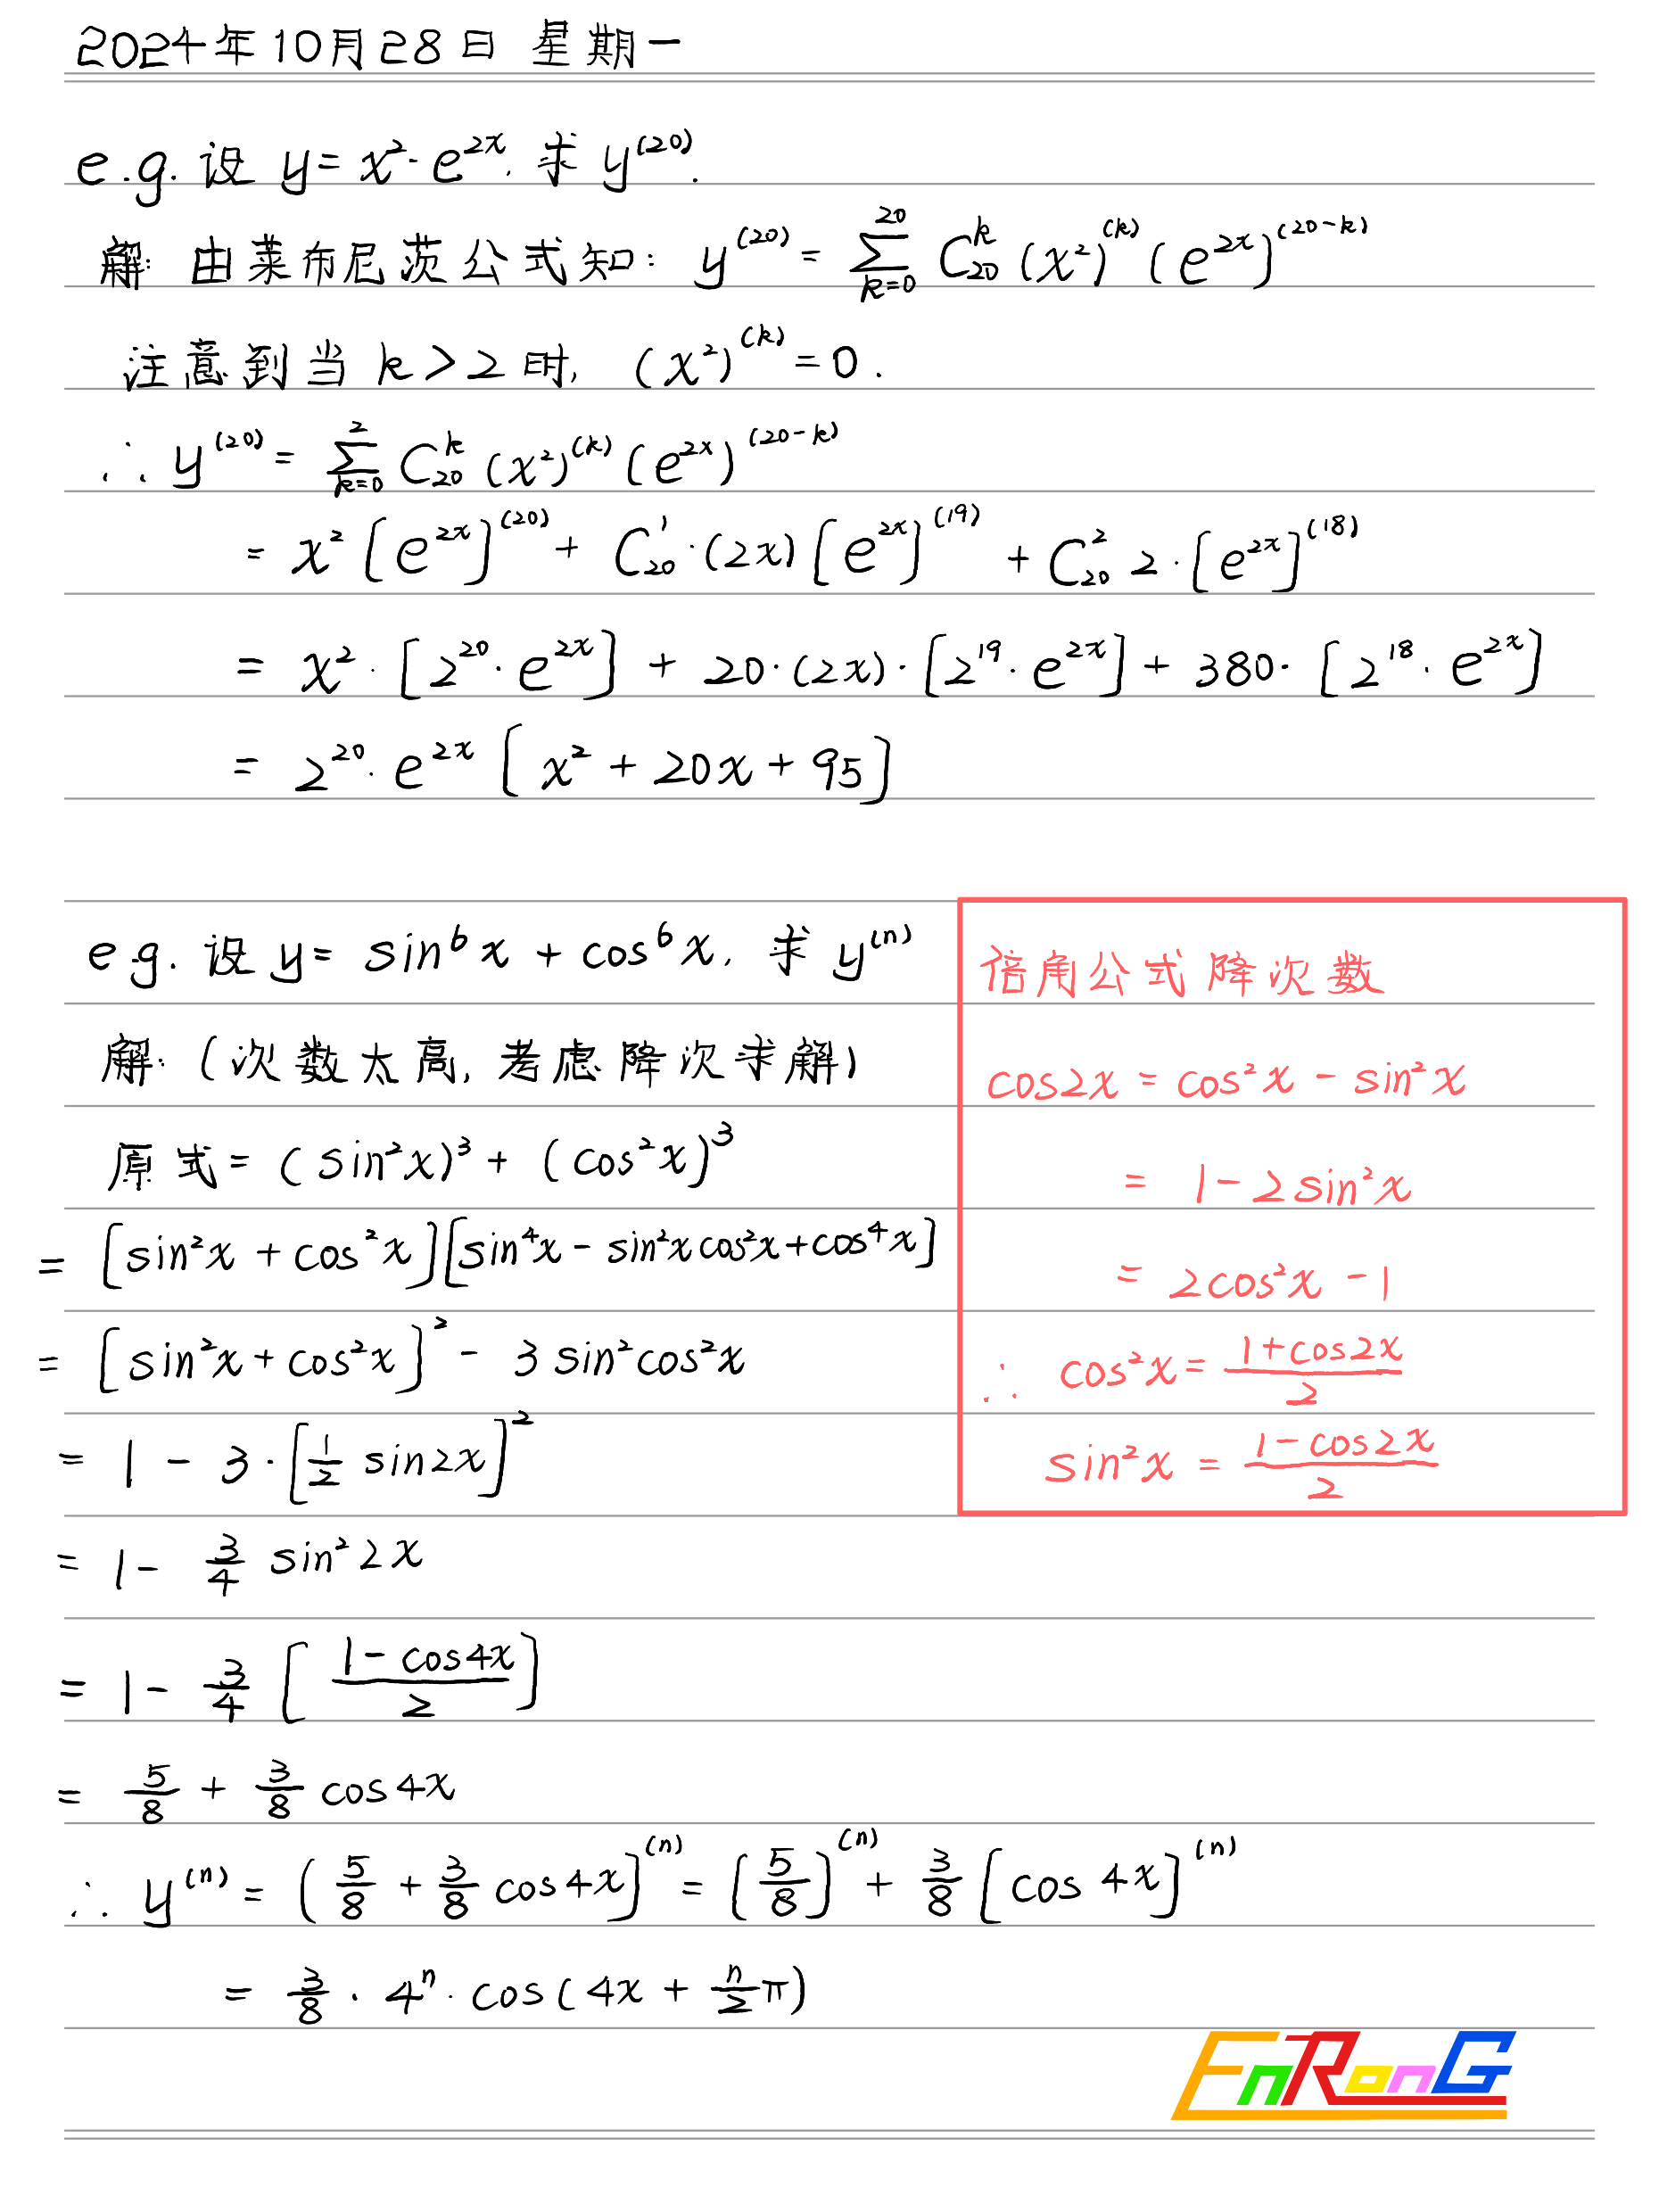 2024年10月28日 星期一
e.g. 设 y = x²·e^{2x}. 求 y^{(20)}.
解: 由莱布尼茨公式知: y^{(20)} = \sum_{k=0}^{20} C_{20}^{k} (x²)^{(k)} (e^{2x})^{(20-k)}
注意到当 k > 2 时, (x²)^{(k)} = 0.
∴ y^{(20)} = \sum_{k=0}^{2} C_{20}^{k} (x²)^{(k)} (e^{2x})^{(20-k)}
= x² [e^{2x}]^{(20)} + C_{20}^{1}·(2x) [e^{2x}]^{(19)} + C_{20}^{2} 2·[e^{2x}]^{(18)}
= x²·[2^{20}·e^{2x}] + 20·(2x)·[2^{19}·e^{2x}] + 380·[2^{18}·e^{2x}]
= 2^{20}·e^{2x} [x² + 20x + 95]
e.g. 设 y = sin⁶x + cos⁶x, 求 y^{(n)}
解: (次数太高, 考虑降次求解)
原式 = (sin²x)³ + (cos²x)³
= [sin²x + cos²x][sin⁴x - sin²x cos²x + cos⁴x]
= [sin²x + cos²x]² - 3 sin²cos²x
= 1 - 3·[\frac{1}{2} sin2x]²
= 1 - \frac{3}{4} sin²2x
= 1 - \frac{3}{4} [\frac{1-cos4x}{2}]
= \frac{5}{8} + \frac{3}{8} cos4x
∴ y^{(n)} = (\frac{5}{8} + \frac{3}{8} cos4x]^{(n)} = [\frac{5}{8}]^{(n)} + \frac{3}{8} [cos 4x]^{(n)}
= \frac{3}{8}·4^n·cos(4x + \frac{n}{2}π)
倍角公式降次数
cos2x = cos²x - sin²x
= 1 - 2sin²x
= 2cos²x - 1
∴ cos²x = \frac{1+cos2x}{2}
sin²x = \frac{1-cos2x}{2}
EnRonG